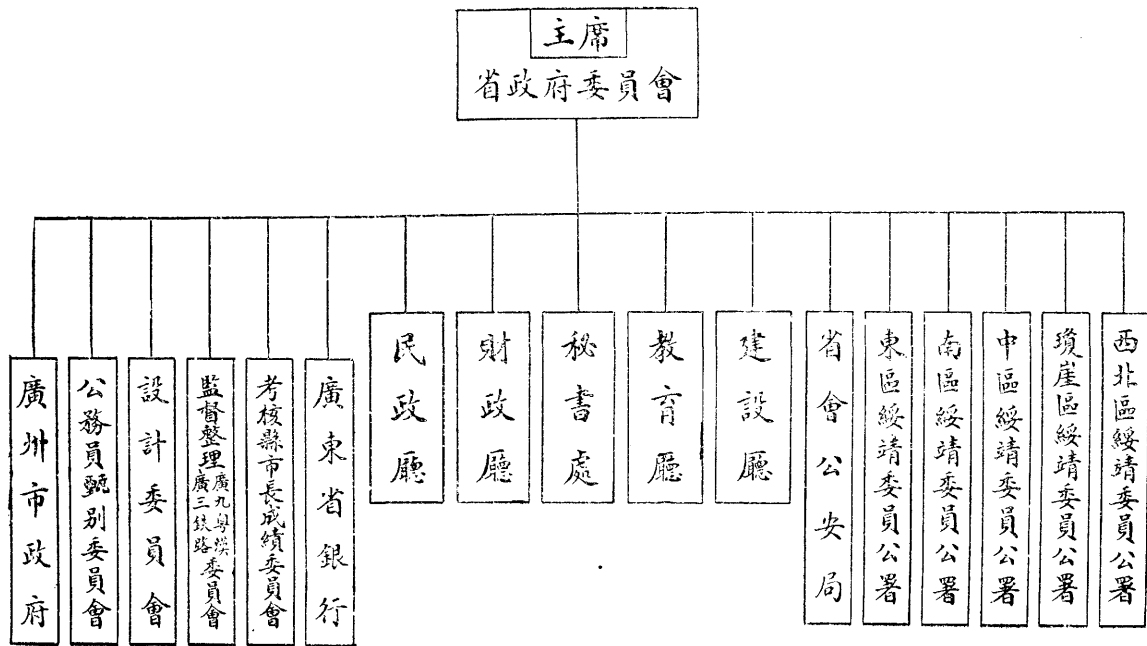 主席
省政府委員會
廣州市政府
公務員甄别委員會
設計委員會
監督整理廣九粤漢廣三鉄路委員會
考核縣市長成績委員會
廣東省銀行
民政廳
財政廳
秘書處
教育廳
建設廳
省會公安局
東區綏靖委員公署
南區綏靖委員公署
中區綏靖委員公署
瓊崖區綏靖委員公署
西北區綏靖委員公署